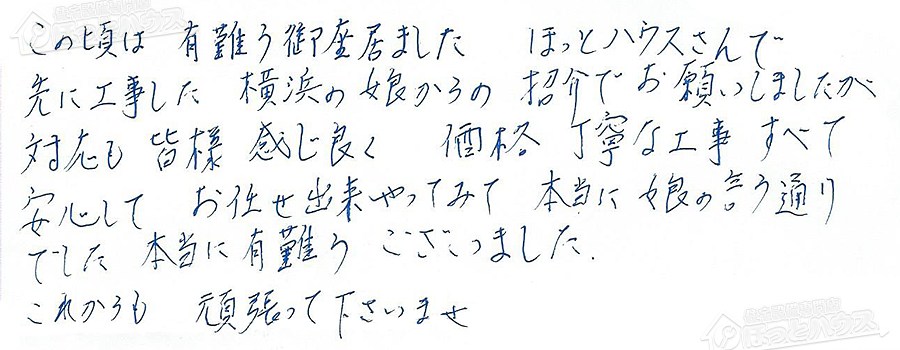 この頃は 有難う御座居ました ほっとハウスさんで
先に工事した 横浜の娘からの 紹介でお願いしましたが
対応も 皆様 感じ良く 価格 丁寧な工事 すべて
安心して お任せ出来やってみて 本当に娘の言う通り
でした 本当に有難う ございました.
これからも 頑張って下さいませ
ほっとハウス
ほっとハウス